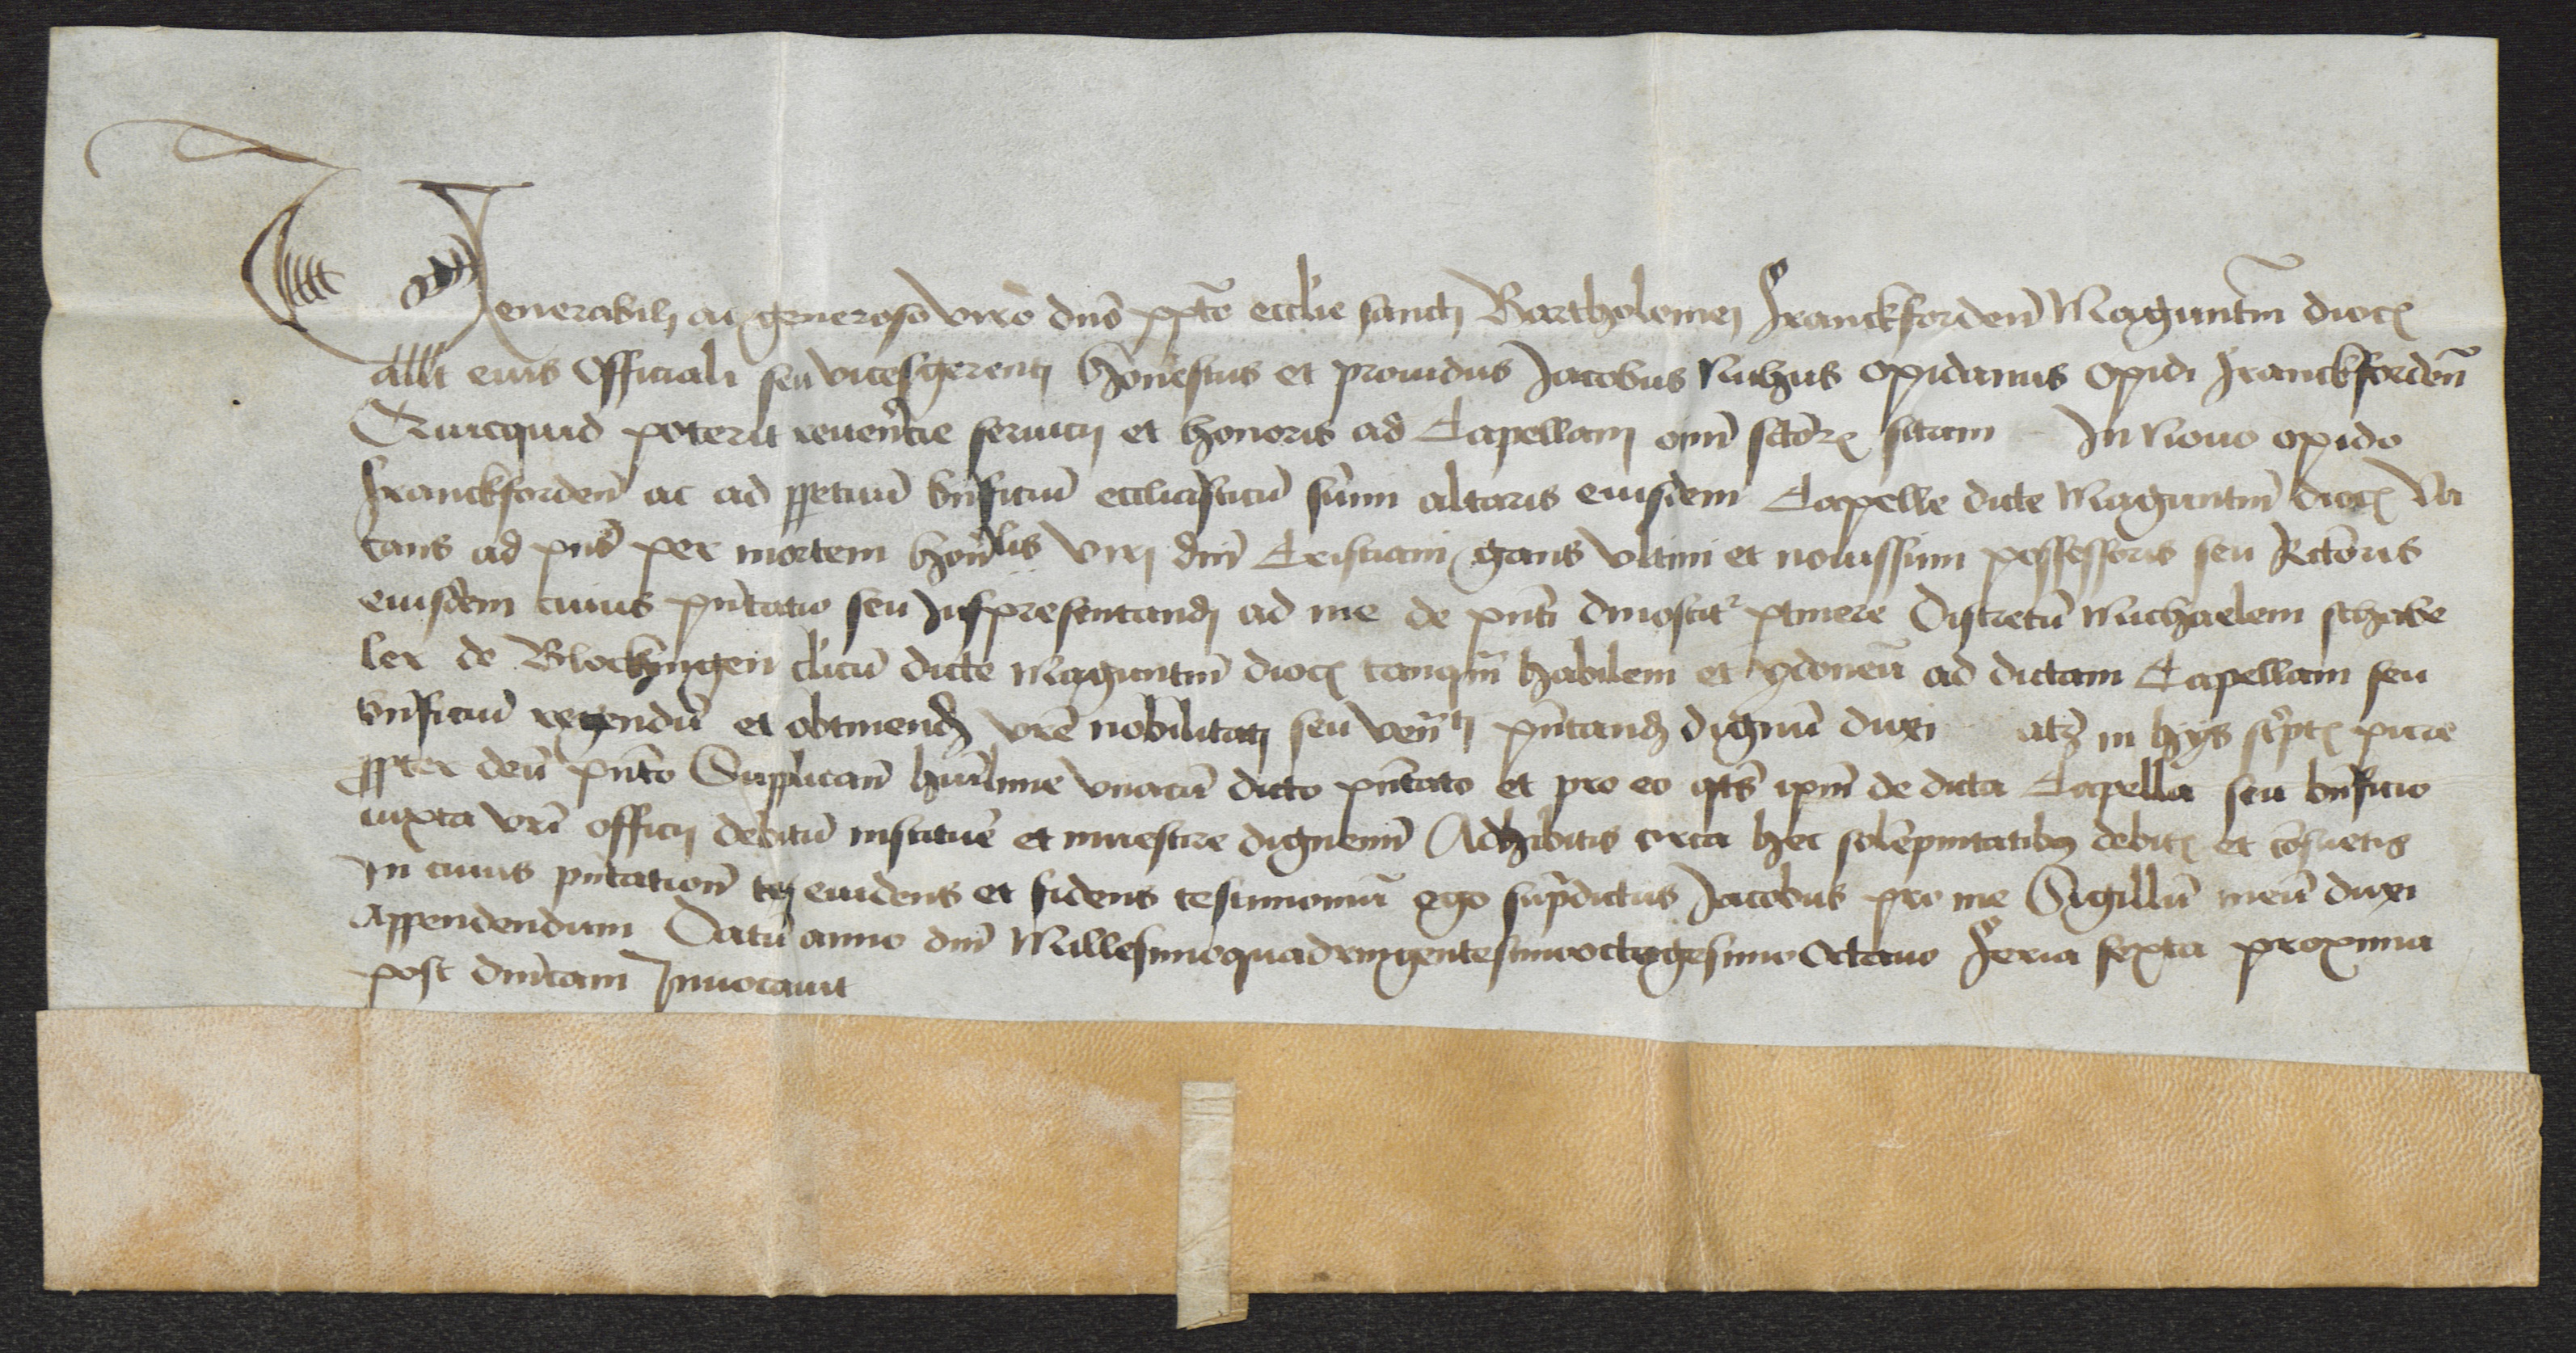 Venerabilj ac generoso viro dno ppto ecclie sancti Bartholomei Franckfordeñ Maguntiñ dioc
Aut eius Officiali seu vicesgerentj Honestus et prouidus Jacobus Nuhus opidanus opidi Franckfordeñ
Quicquid poterit reuerẽcie seruicij et honoris ad Capellam oim sctõr sitam In Nouo opido
Franckfordeñ ac ad ppetuũ bnficiũ ecclesiasticũ sũmi altaris eiusdem Capelle dicte Maguntiñ dioc Va
cans ad pns per mortem honlis Viri dni Cristiani gans vltimi et nouissimi possessoris seu Rctoris
eiusdem cuius pñtatio seu Juspresentandj ad me de pnti dinoscit ptinere Discretũ Michaelem schebe
ler de Blochingen clicũ dicte Maguntiñ dioc tanqm habilem et ydoneũ ad dictam Capellam seu
bnficiũ regendũ et obtinend vrẽ nobilitatj seu veñtj pñtand dignũ duxi atz in hijs scriptz pure
ppter deũ pñto Supplicañ humlime vnacũ dicto pñtato et pro eo qts ipm de dicta Capella seu bnficio
iuxta vri officij debitũ instituẽ et inuestire dignemi Adhibitis circa hec solẽpnitatibz debitz et cõsuetis
In cuius pñtationi euidens et fidens testimoniũ ego supradictus Jacobus pro me Sigillũ meũ duxi
Appendendum Datũ anno dni Millesimoquadringentesimooctogesimo Octauo Feria sexta proxima
post dnicam Inuocauit